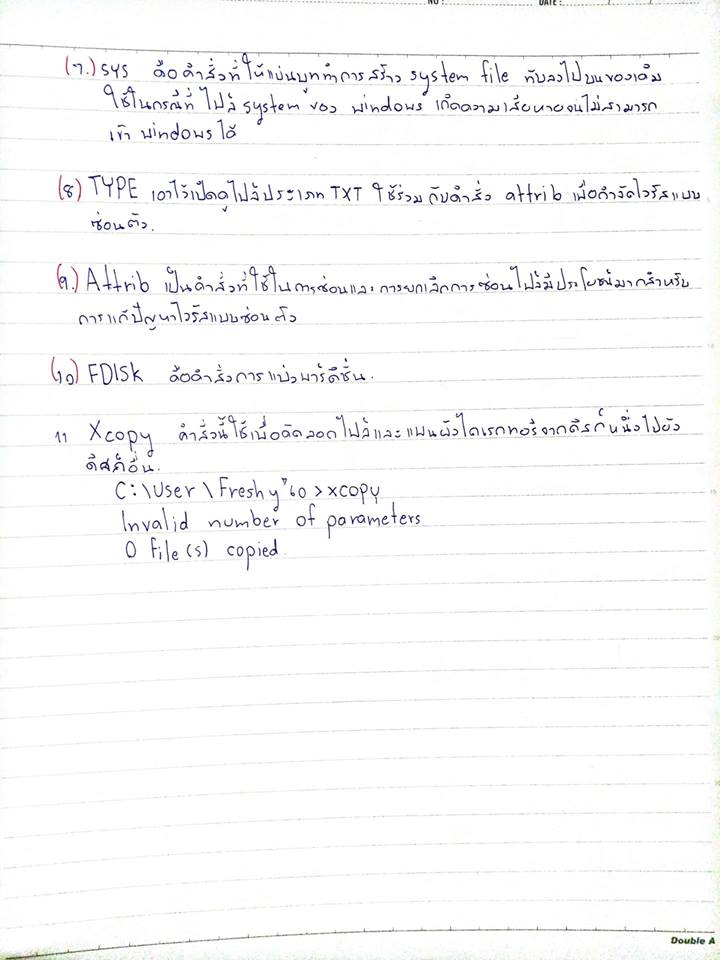 NO: DATE:
(7.) SYS คือคำสั่งที่ให้แผ่นบูททำการสร้าง system file ทับลงไปบนของเดิม
ใช้ในกรณีที่ ไฟล์ system ของ windows เกิดความเสียหายจนไม่สามารถ
เข้า windows ได้
(8) TYPE เอาไว้เปิดดูไฟล์ประเภท TXT ใช้ร่วมกับคำสั่ง attrib เพื่อกำจัดไวรัสแบบ
ซ่อนตัว.
(9.) Attrib เป็นคำสั่งที่ใช้ในการซ่อนและการยกเลิกการซ่อนไฟล์มีประโยชน์มากสำหรับ
การแก้ปัญหาไวรัสแบบซ่อนตัว
(10) FDISK คือคำสั่งการแบ่งพาร์ติชั่น.
11 Xcopy คำสั่งนี้ใช้เพื่อคัดลอกไฟล์และแผนผังไดเรกทอรีจากดิสก์หนึ่งไปยัง
ดิสก์อื่น.
C:\User\Freshy"60>xcopy
Invalid number of parameters
0 file(s) copied.
Double A